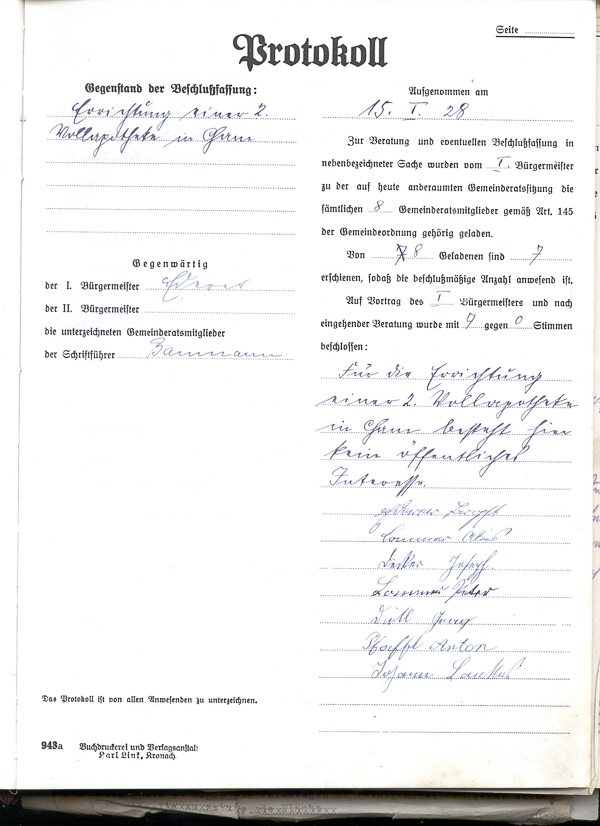 Seite
Protokoll
Gegenstand der Beschlußfassung:
Errichtung einer 2.
Vollapotheke in Cham
Gegenwärtig
der I. Bürgermeister Ederer
der II. Bürgermeister
die unterzeichneten Gemeinderatsmitglieder
der Schriftführer Baumann
Das Protokoll ist von allen Anwesenden zu unterzeichnen.
943a Buchdruckerei und Verlagsanstalt
Karl Link, Kronach.
Aufgenommen am
15. I. 28
Zur Beratung und eventuellen Beschlußfassung in
nebenbezeichneter Sache wurden vom I. Bürgermeister
zu der auf heute anberaumten Gemeinderatssitzung die
sämtlichen 8 Gemeinderatsmitglieder gemäß Art. 145
der Gemeindeordnung gehörig geladen.
Von 8 Geladenen sind 7
erschienen, sodaß die beschlußmäßige Anzahl anwesend ist.
Auf Vortrag des I Bürgermeisters und nach
eingehender Beratung wurde mit 7 gegen 0 Stimmen
beschlossen:
Für die Errichtung
einer 2. Vollapotheke
in Cham besteht hier
kein öffentliches
Interesse.
Ederer
Lommer Alois
Decker Joseph.
Lommer Peter
Anton
Johann